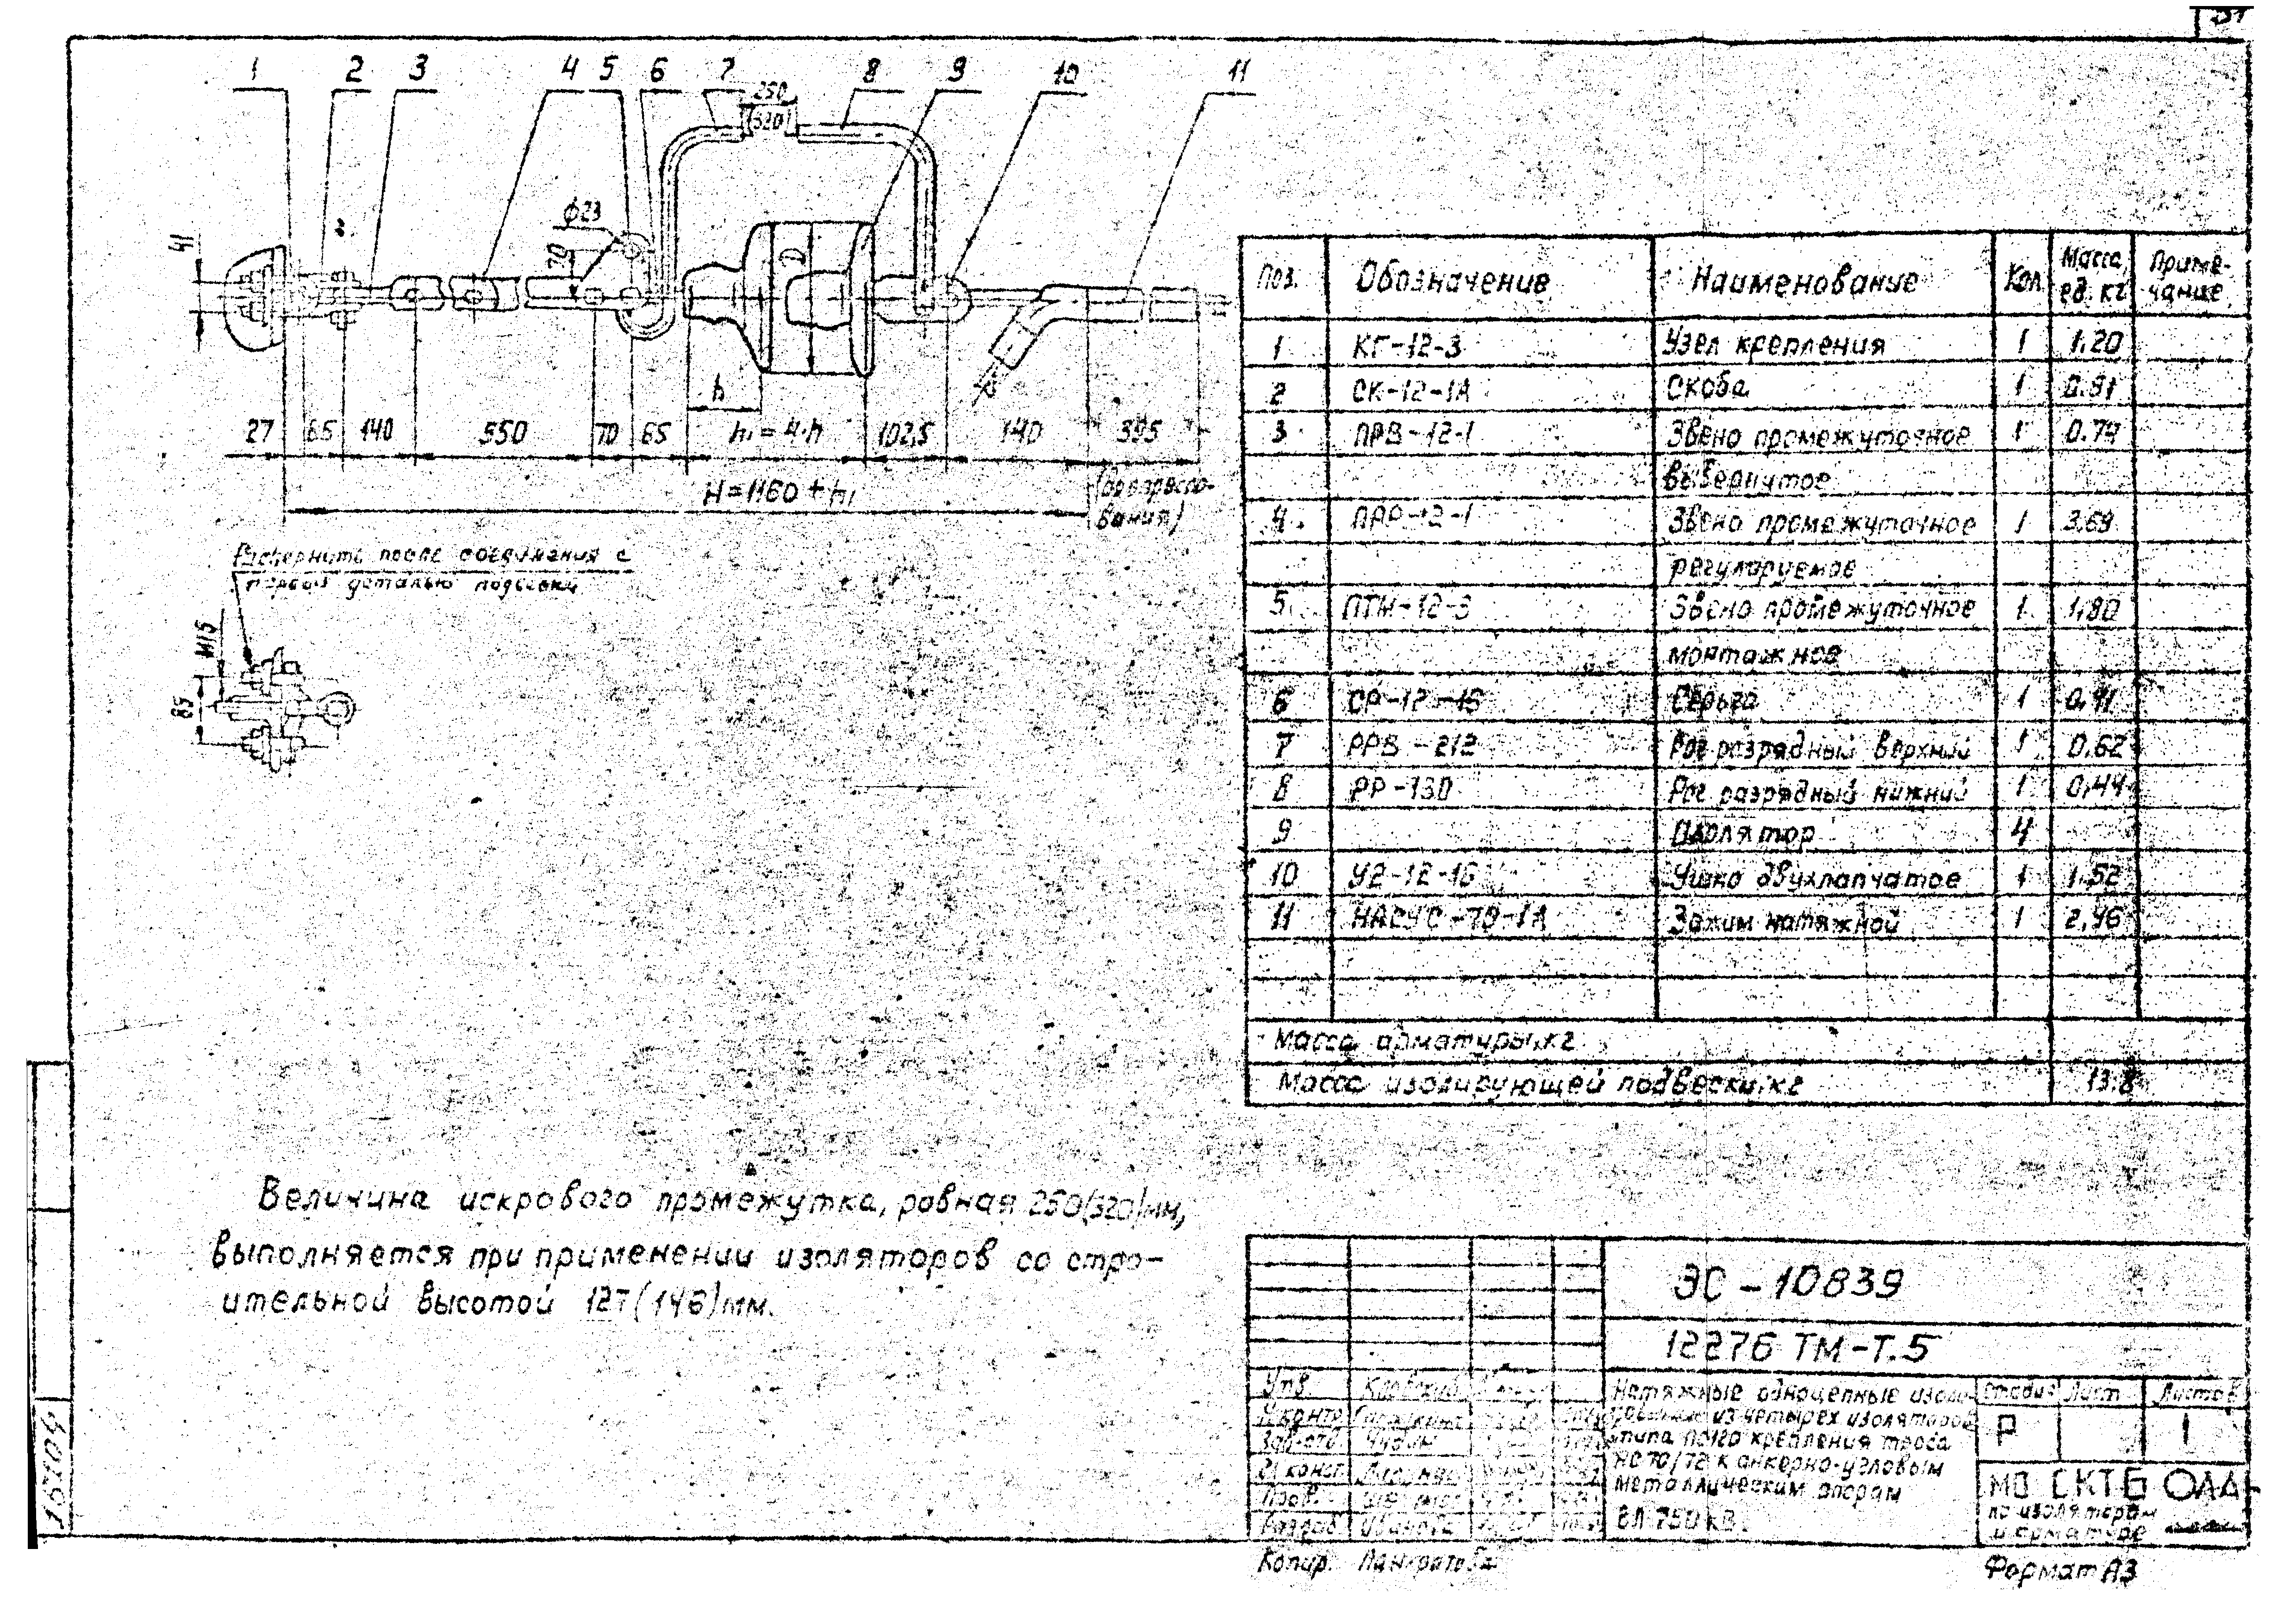 1 2 3 4 5 6 7 8 9 10 11
250
(320)
ф23
41
70
D
h
27 65 140 550 70 65 h₁=4·h 102,5 140 395
H=1160+h₁
(до опрессо-
вания)
Расвернить после соединения с
первой деталью подвески
85
Поз. Обозначение Наименование Кол. Масса, ед. кг Приме-чание
1 КГ-12-3 Узел крепления 1 1.20
2 СК-12-1А Скоба 1 0.91
3 ПРВ-12-1 Звено промежуточное 1
вывернутое
4 ПРР-12-1 Звено промежуточное 1 3.69
регулируемое
5. ПТМ-12-3 Звено промежуточное 1 1,80
монтажное
6 СР-12-16 Серьга 1 0,41
7 РРВ-212 Рог разрядный верхний 1 0.62
8 РР-130 Рог разрядный нижний 1 0,44
9 Изолятор 4
10 У2-12-16 Ушко двухлапчатое 1 1.52
11 НАСУС-70-1А Зажим натяжной 1 2,96
Масса арматуры, кг
Масса изолирующей подвески, кг 13.8
Величина искрового промежутка, равная 250(320)мм,
выполняется при применении изоляторов со стро-
ительной высотой 127(146)мм.
ЭС-10839
12276 ТМ-Т.5
Утв.
Н.контр
Зав.отд. Чудин
Гл.конст
Пров.
Разраб. Иванова
Натяжные одноцепные изоли-
из четырех изоляторов
типа ПС120 крепления троса
к анкерно-угловым
металлическим опорам
ВЛ 750 кВ.
Стадия Лист Листов
Р 1
МО СКТБ
по изоляторам
и арматуре
Копир. Панкратова
Формат А3